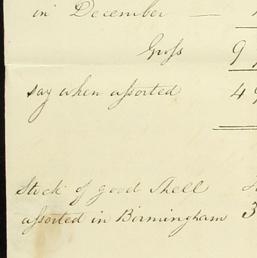 in December —
Groſs 9
say when aſsorted 49
Stock of good Shell
aſsorted in Birmingham 3